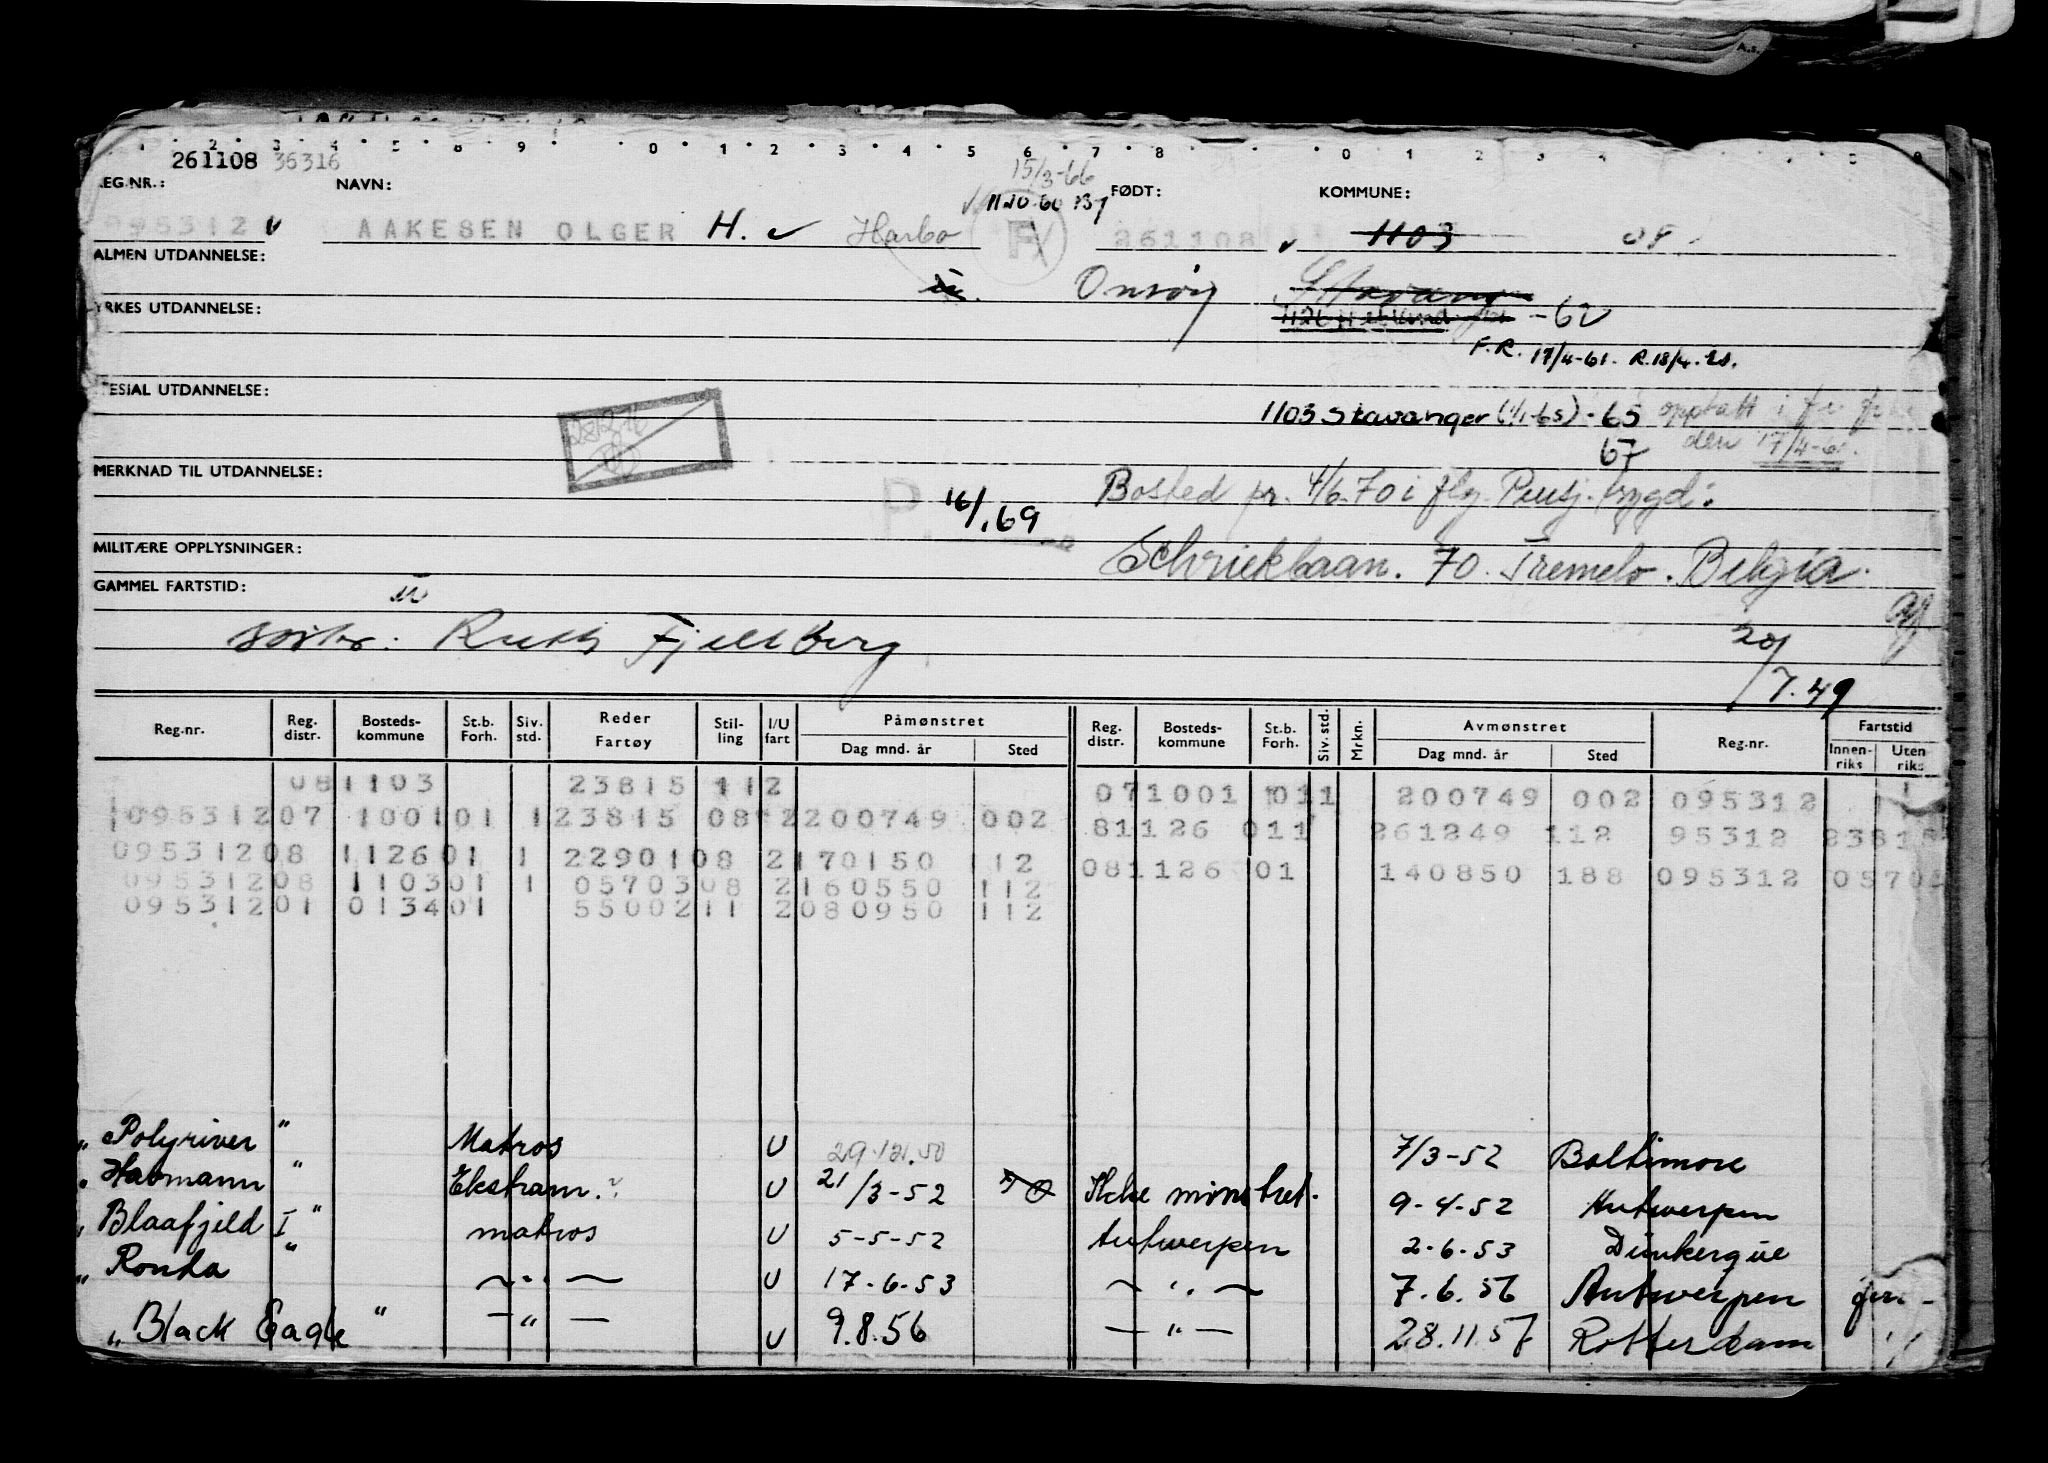 261108 36316
REG.NR.: NAVN: FØDT: KOMMUNE:
15/3-66
095312 AAKESEN OLGER H. Harbo 261108 1103
ALMEN UTDANNELSE:
Onsøy
YRKES UTDANNELSE: -62
F.R. 17/4-61. R. 18/4.
SPESIAL UTDANNELSE:
1103 Stavanger (1/1-65) - 65 opptatt i
67 den 17/4-61.
MERKNAD TIL UTDANNELSE:
Bosted pr. 4/6-70 i flg. Pensj.trygd:
P. 16/1.69
MILITÆRE OPPLYSNINGER:
Schriekbaan. 70. Tremelo. Belgia.
GAMMEL FARTSTID:
søster: Ruth Fjellberg
20/7.49
Reg.nr. Reg. distr. Bosteds-kommune St.b. Forh. Siv. std. Reder Fartøy Stil-ling I/U fart Påmønstret Dag mnd. år Sted Reg. distr. Bosteds-kommune St.b. Forh. Siv. std. Mrkn. Avmønstret Dag mnd. år Sted Reg.nr. Fartstid Innen-riks Uten riks
081103 23815 112 071001 011 200749 002 095312
09531207 100101 1 23815 08 2 200749 002 81126 011 261249 112 95312 23815
09531208 112601 1 22901 08 2 170150 112 081126 01 140850 188 095312 0570
09531208 110301 1 05703 08 2 160550 112
09531201 013401 55002 11 2 080950 112
" Polyriver " Matros U 29.12.50 7/3-52 Baltimore
" Havmann " Ekstram. U 21/3-52 Ikke mønstret. 9-4-52 Antwerpen
" Blaafjeld I " matros U 5-5-52 Antwerpen 2-6-53 Dünkerque
" Ronda " — " — U 17-6-53 — " — 7.6.56 Antwerpen
" Black Eagle " — " — U 9.8.56 — " — 28.11.57 Rotterdam